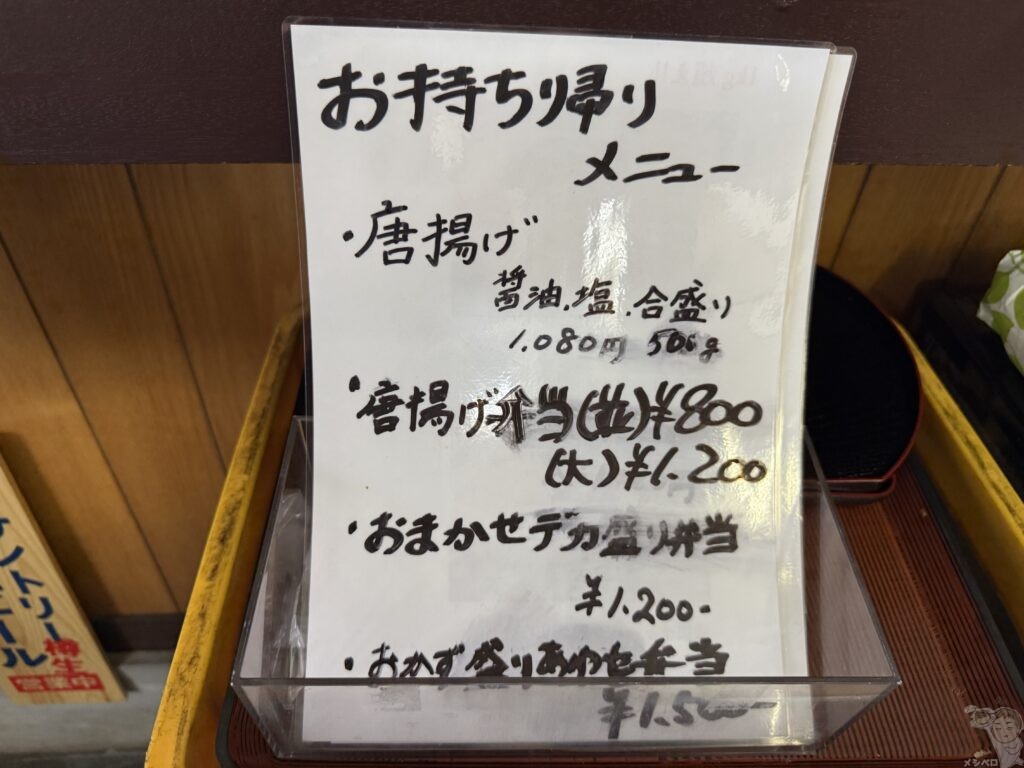 お持ち帰り
メニュー
・唐揚げ
醤油.塩.合盛り
1.080円 500g
・唐揚げ弁当(並)¥800
(大)¥1.200
・おまかせデカ盛り弁当
¥1.200-
・おかず盛りあわせ弁当
¥1.500-
サントリー
ビール
樽生
営業中
メシペロ